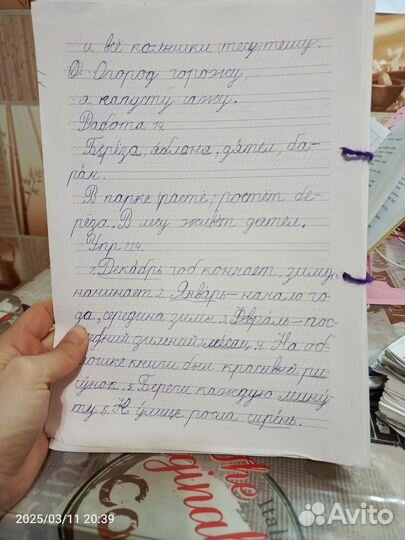 и всё колышки тешу тешу.
О: Огород горожу,
я капусту сажу.
Работа 14.
Берёза, яблоня, дятел, ба-
ран.
В парке (расте) ростёт бе-
рёза. В лесу живёт дятел.
Упр 224.
1. Декабрь год кончает, зиму
начинает. 2. Январь – начало го-
да, середина зимы. 3. Февраль – пос-
ледний зимний месяц. 4. На об-
ложке книги был красивый ри-
сунок. 5. Береги каждую мину-
ту. 6. На улице росла сирень.
2025/03/11 20:39
The
Original
Ita
CO
Avito